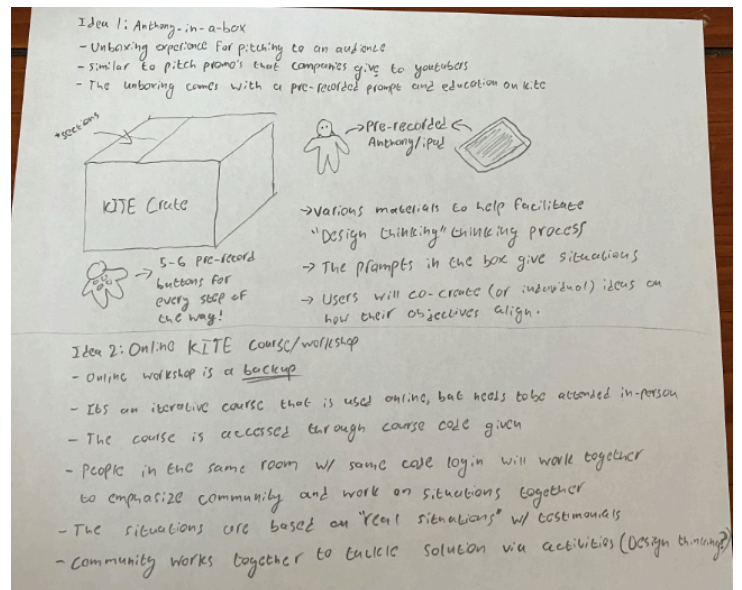 Idea 1: Anthony-in-a-box
- Unboxing experience for pitching to an audience
- Similar to pitch promo's that companies give to youtubers
- The unboxing comes with a pre-recorded prompt and education on kite
*sections
KITE Crate
→ Pre-recorded ←
Anthony/ipad
→ 5-6 pre-record
buttons for
every step of
the way!
→ various materials to help facilitate
"Design thinking" thinking process
→ The prompts in the box give situations
→ Users will co-create (or individual) ideas on
how their objectives align.
Idea 2: Online KITE course/workshop
- Online workshop is a backup
- Its an iterative course that is used online, but needs to be attended in-person
- The course is accessed through course code given
- People in the same room w/ same code login will work together
to emphasize community and work on situations together
- The situations are based on "real situations" w/ testimonials
- Community works together to tackle solution via activities (Design thinking?)